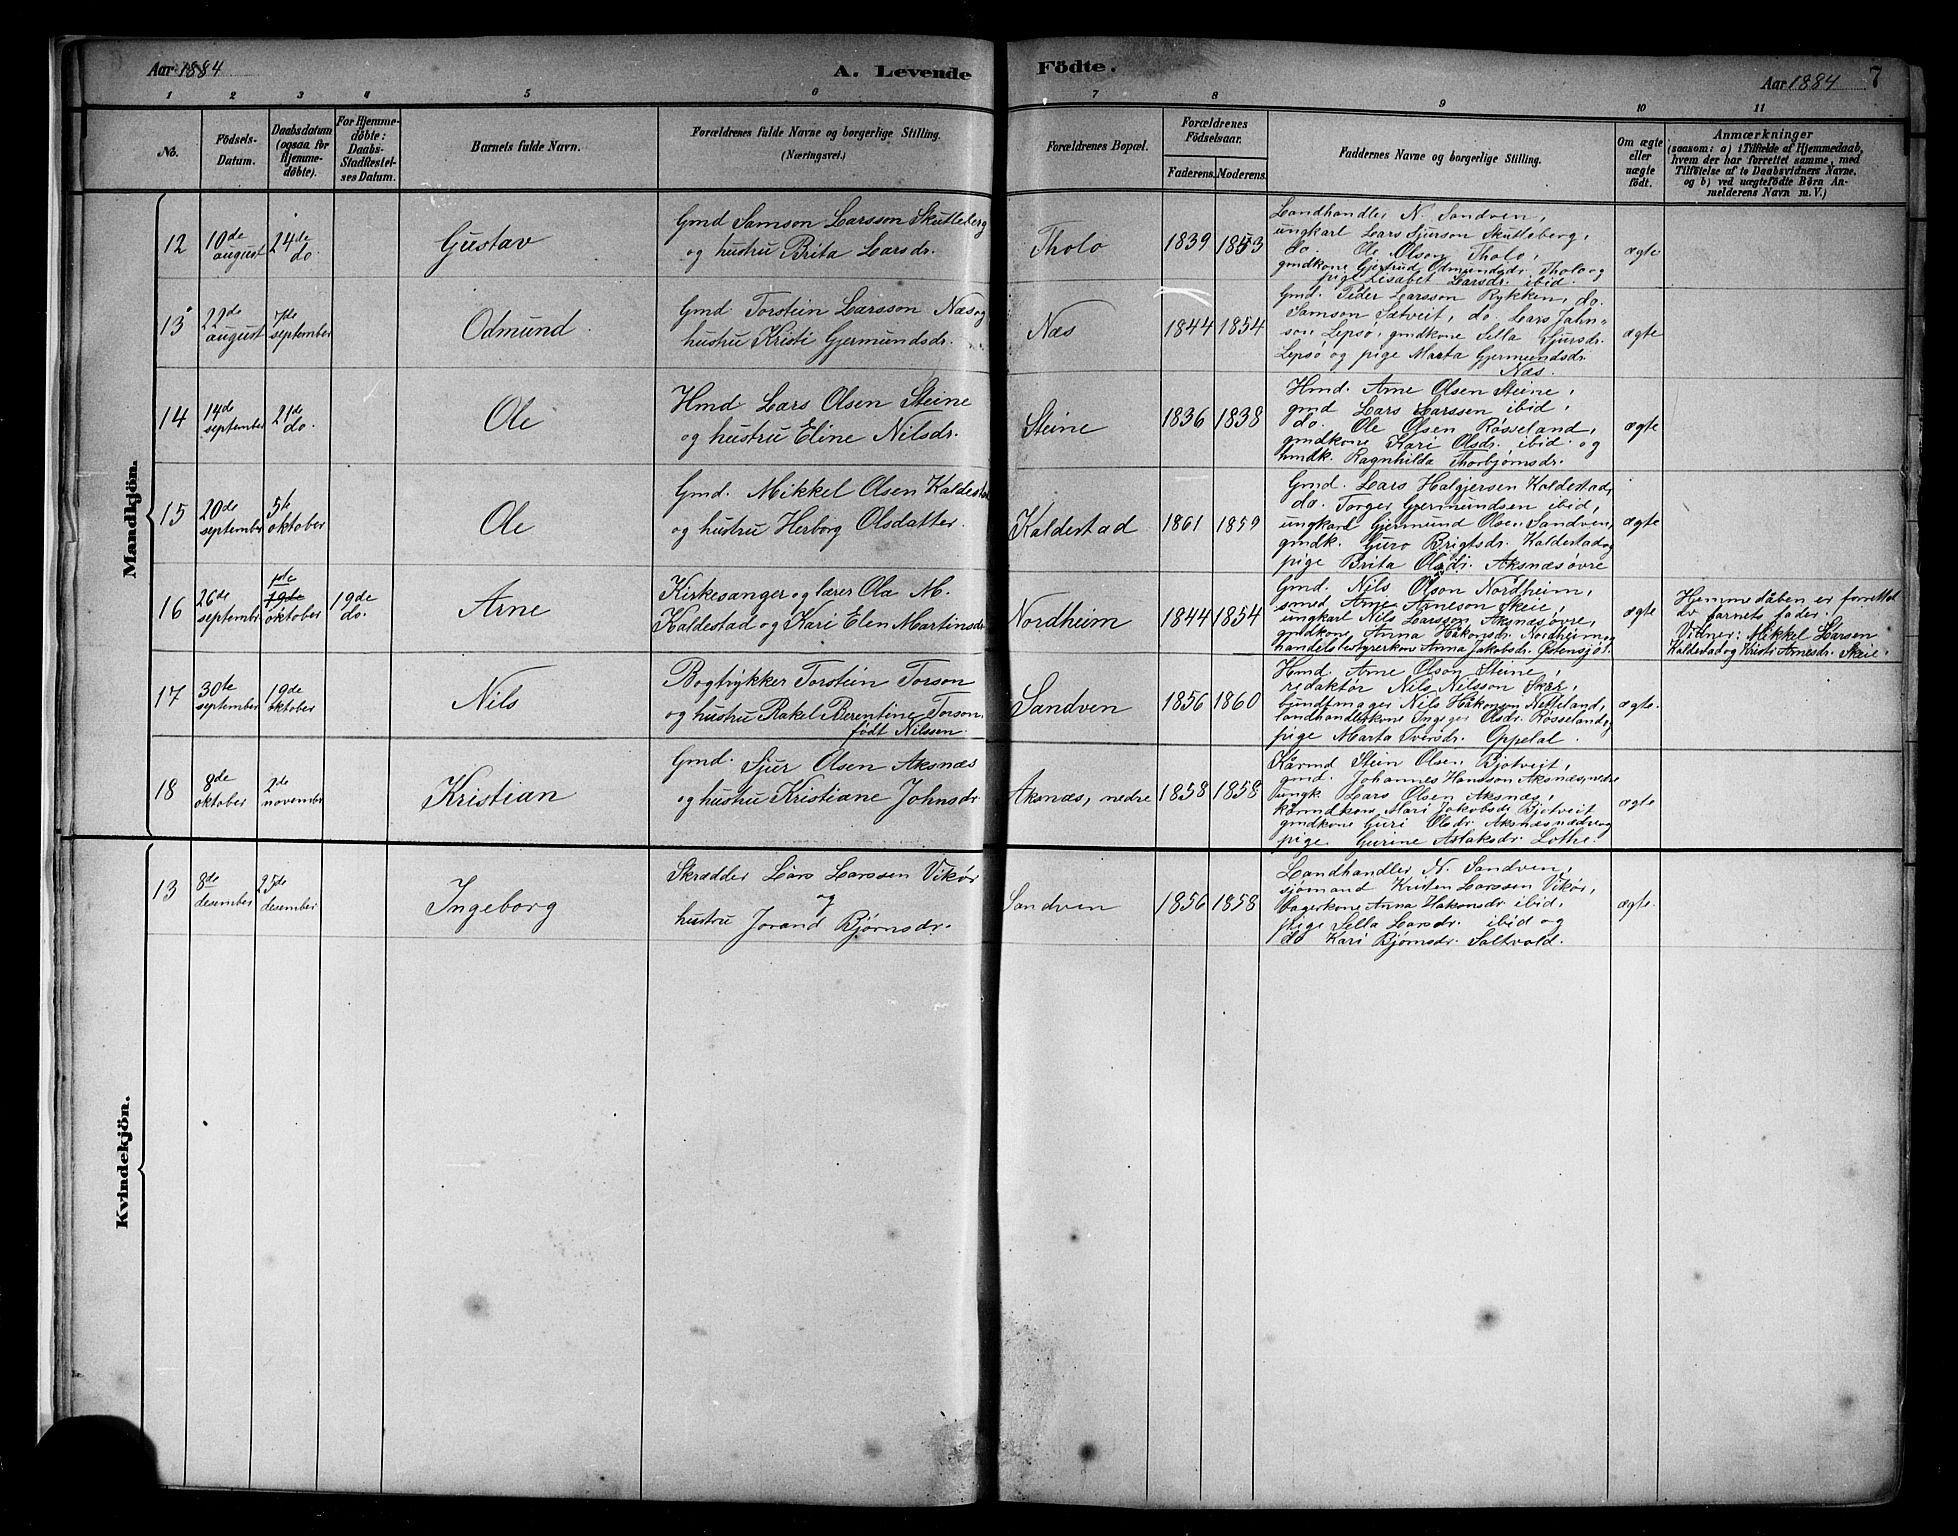 Aar 1884
A. Levende
Födte.
Aar 1884
7
1 2 3 4 5 6 7 8 9 10 11
No.
Födsels-
Datum.
Daabsdatum
(ogsaa for
Hjemme-
döbte).
For Hjemme-
döbte:
Daabs-
Stadfæstel-
ses Datum.
Barnets fulde Navn.
Forældrenes fulde Navne og borgerlige Stilling.
(Næringsvei.)
Forældrenes Bopæl.
Forældrenes
Födselsaar.
Faderens. Moderens.
Faddernes Navne og borgerlige Stilling.
Om ægte
eller
uægte
født.
Anmærkninger
(saasom: a) i Tilfælde af Hjemmedaab,
hvem der har forrettet samme, med
Tilföielse af to Daabsvidners Navne.
og b) ved uægtefödte Börn An-
melderens Navn m. V.)
Mandkjön.
12
10de
august
24de
do.
Gustav
Gmd Samson Larsson Skutleberg
og hustru Brita Larsdr.
Tholo
1839 1853
Landhandler N. Sandven,
ungkarl Lars Sjurson Skutleberg,
do. Ole Olson Tholo,
gmdkone Gjertrud Odmundsdr. Tholo og
pige Lisabet Larsdr. ibid.
ægte
13
22de
august
7de
september
Odmund
Gmd Torstein Larsson Næs og
hustru Kristi Gjermundsdr.
Næs
1844 1854
Gmd. Peder Larsson Rykken, do.
Samson Sætveit, do. Lars Jahn-
son Lepsö, gmdkone Sella Sjursdr.
Lepsö og pige Marta Gjermundsdr
Næs.
ægte
14
14de
september
21de
do.
Ole
Hmd Lars Olsen Steine
og hustru Eline Nilsdr.
Steine
1836 1838
Hmd. Arne Olsen Steine,
gmd Lars Larssen ibid,
do. Ole Olsen Røsseland,
gmdkone Kari Olsdr. ibid. og
hmdk. Ragnhilda Thorbjørnsdr.
ægte
15
20de
september
5te
oktober
Ole
Gmd. Mikkel Olsen Kaldestad
og hustru Herborg Olsdatter.
Kaldestad
1861 1859
Gmd. Lars Halgjersen Kaldestad,
do. Torger Gjermundsen ibid,
ungkarl Gjermund Olsen Sandven,
gmdk. Guro Brigtsdr. Kaldestad og
pige Brita Olsdr. Aksnæs øvre
ægte
16
26de
september
19de
oktober
19de
do.
Arne
Kirkesanger og lærer Ola M.
Kaldestad og Kari Elen Martinsdr
Nordheim
1844 1854
Gmd. Nils Olson Nordheim,
smed Arne Arneson Skeie,
ungkarl Nils Larsson Aksnæs øvre,
gmdkone Anna Håkonsdr. Nordheim og
handelsbestyrerkone Anna Jakobsdr. Østensjø.
ægte
Hjemmedåben er forrettet
av barnets fader.
Vidner: Mikkel Larsen
Kaldestad og Kristi Arnesdr. Skeie.
17
30te
september
19de
oktober
Nils
Bogtrykker Torstein Torson
og hustru Rakel Berentine Torson
født Nilssen.
Sandven
1856 1860
Hmd Arne Olson Steine,
redaktør Nils Nilsson Skår,
bundtmager Nils Håkonson Netteland,
landhandlerkone Ingeger Olsdr. Røsseland og
pige Marta Iversdr. Oppedal.
ægte.
18
8de
oktober
2de
november
Kristian
Gmd. Sjur Olsen Aksnæs
og hustru Kristiane Johnsdr
Aksnæs, nedre
1858 1858
Kårmd Stein Olsen Bjotveit,
gmd. Johannes Hansson Aksnæs, nedre
ungk. Lars Olsen Aksnæs,
kårmdkone Mari Jakobsdr Bjotveit
gmdkone Guri Olsdr. Aksnæs nedre og
pige Gurine Aslaksdr. Lothe.
ægte
Kvindekjön.
13
8de
desember
25de
desember
Ingeborg
Skrædder Lars Larssen Vikør
og
hustru Jorand Bjørnsdr.
Sandven
1856 1858
Landhandler N. Sandven,
sjømand Kristen Larssen Vikør,
bagerkone Anna Håkonsdr ibid,
pige Sella Larsdr. ibid og
do Kari Bjørnsdr. Saltvold.
ægte.